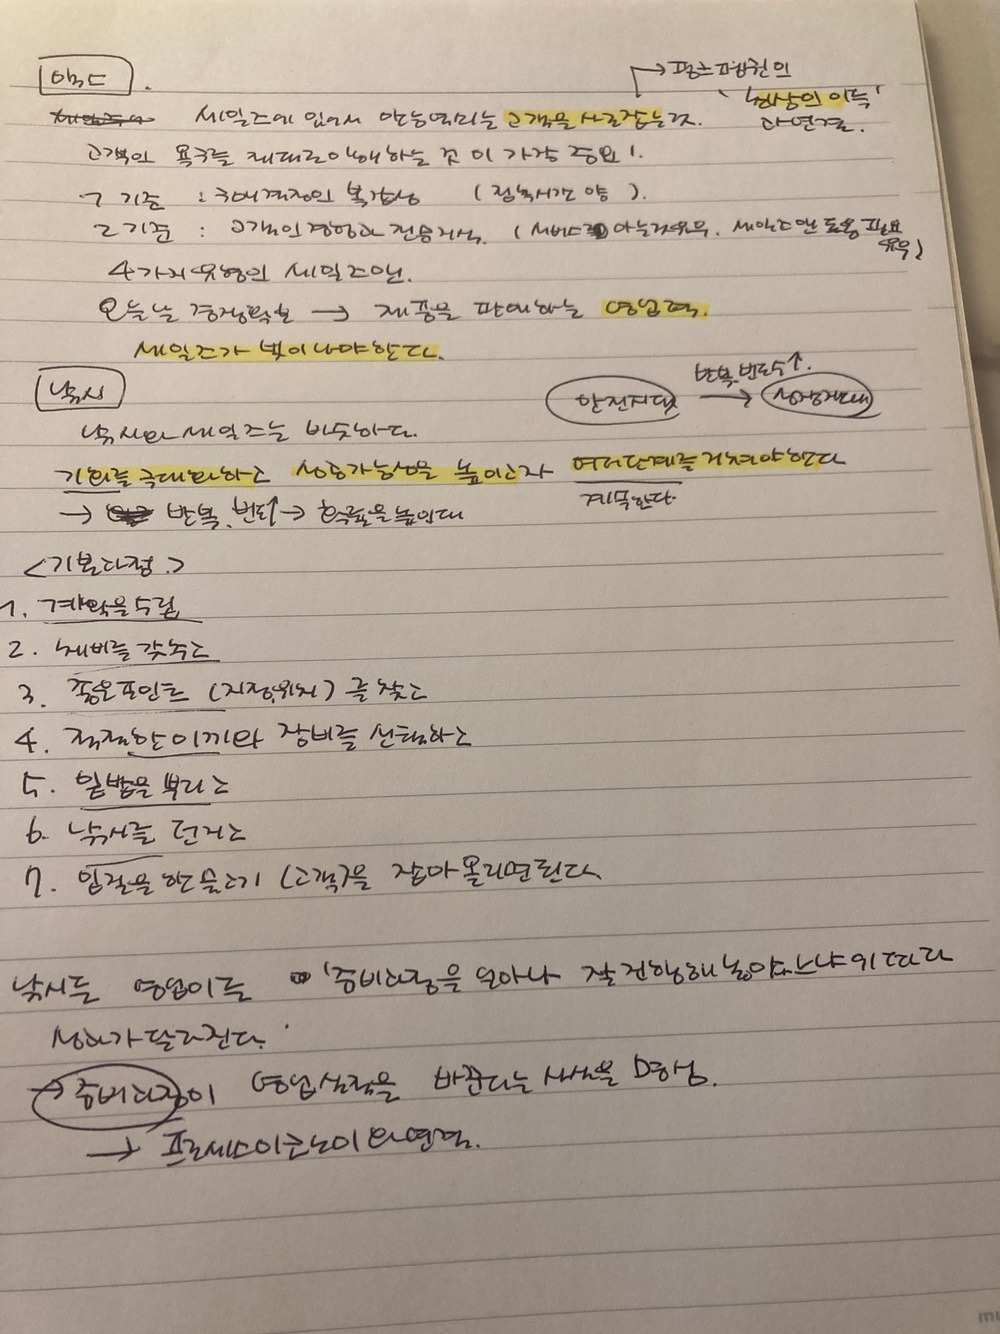 → 펭스 펭귄의
'협상의 이득'
과 연결.
세일즈에 있어서 만능열쇠는 고객을 사로잡는것.
고객의 욕구를 제대로 이해하는 것이 가장 중요!
1 기준 : 구매결정의 복잡성 (접촉시간 양).
2 기준 : 고객의 경험과 전문지식. (서비스를 아는지 유무. 세일즈맨 도움 필요 유무)
4가지 유형의 세일즈맨.
오늘날 경쟁력은 → 제품을 판매하는 영업력.
세일즈가 빛이 나야한다.
낚시
안전지대 반복, 빈도수↑. → 성장지대
낚시와 세일즈는 비슷하다.
기회를 극대화하고 성공가능성을 높이고자 여러단계를 거쳐야한다
계획한다
→ 반복, 빈도↑ → 확률을 높인다
<기본과정.>
1. 계획을 수립
2. 채비를 갖추고
3. 좋은포인트 (지점,위치) 를 찾고
4. 적절한 미끼와 장비를 선택하고
5. 밑밥을 뿌리고
6. 낚시를 던지고
7. 입질을 한 물고기 (고객)을 잡아 올리면된다.
낚시든 영업이든 '준비과정을 얼마나 잘 진행해 놓았느냐'에 따라
성과가 달라진다.
→ 준비과정이 영업실적을 바꾼다는 사실을 명심.
→ 프로세스이코노미와 연결.